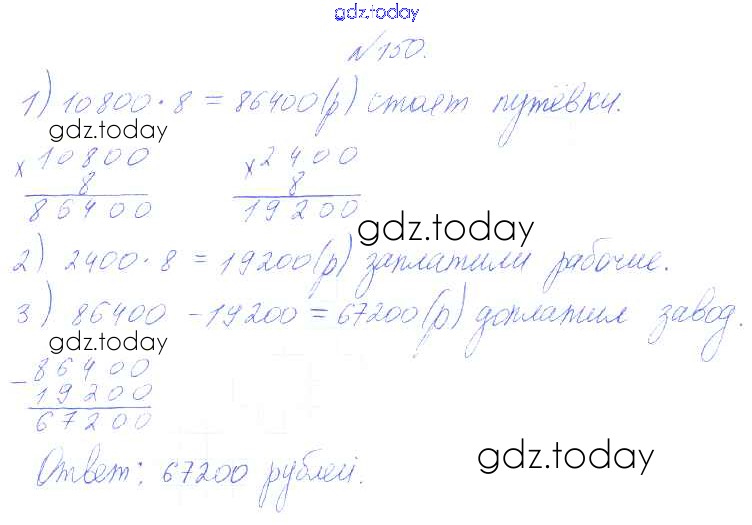 gdz.today
№150.
1) 10800 · 8 = 86400(р) стоят путёвки.
gdz.today gdz.today
× 10800 × 2400
8 8
86400 19200
gdz.today
2) 2400 · 8 = 19200(р) заплатили рабочие.
3) 86400 - 19200 = 67200(р) доплатил завод.
gdz.today
- 86400
19200
67200
Ответ: 67200 рублей.
gdz.today